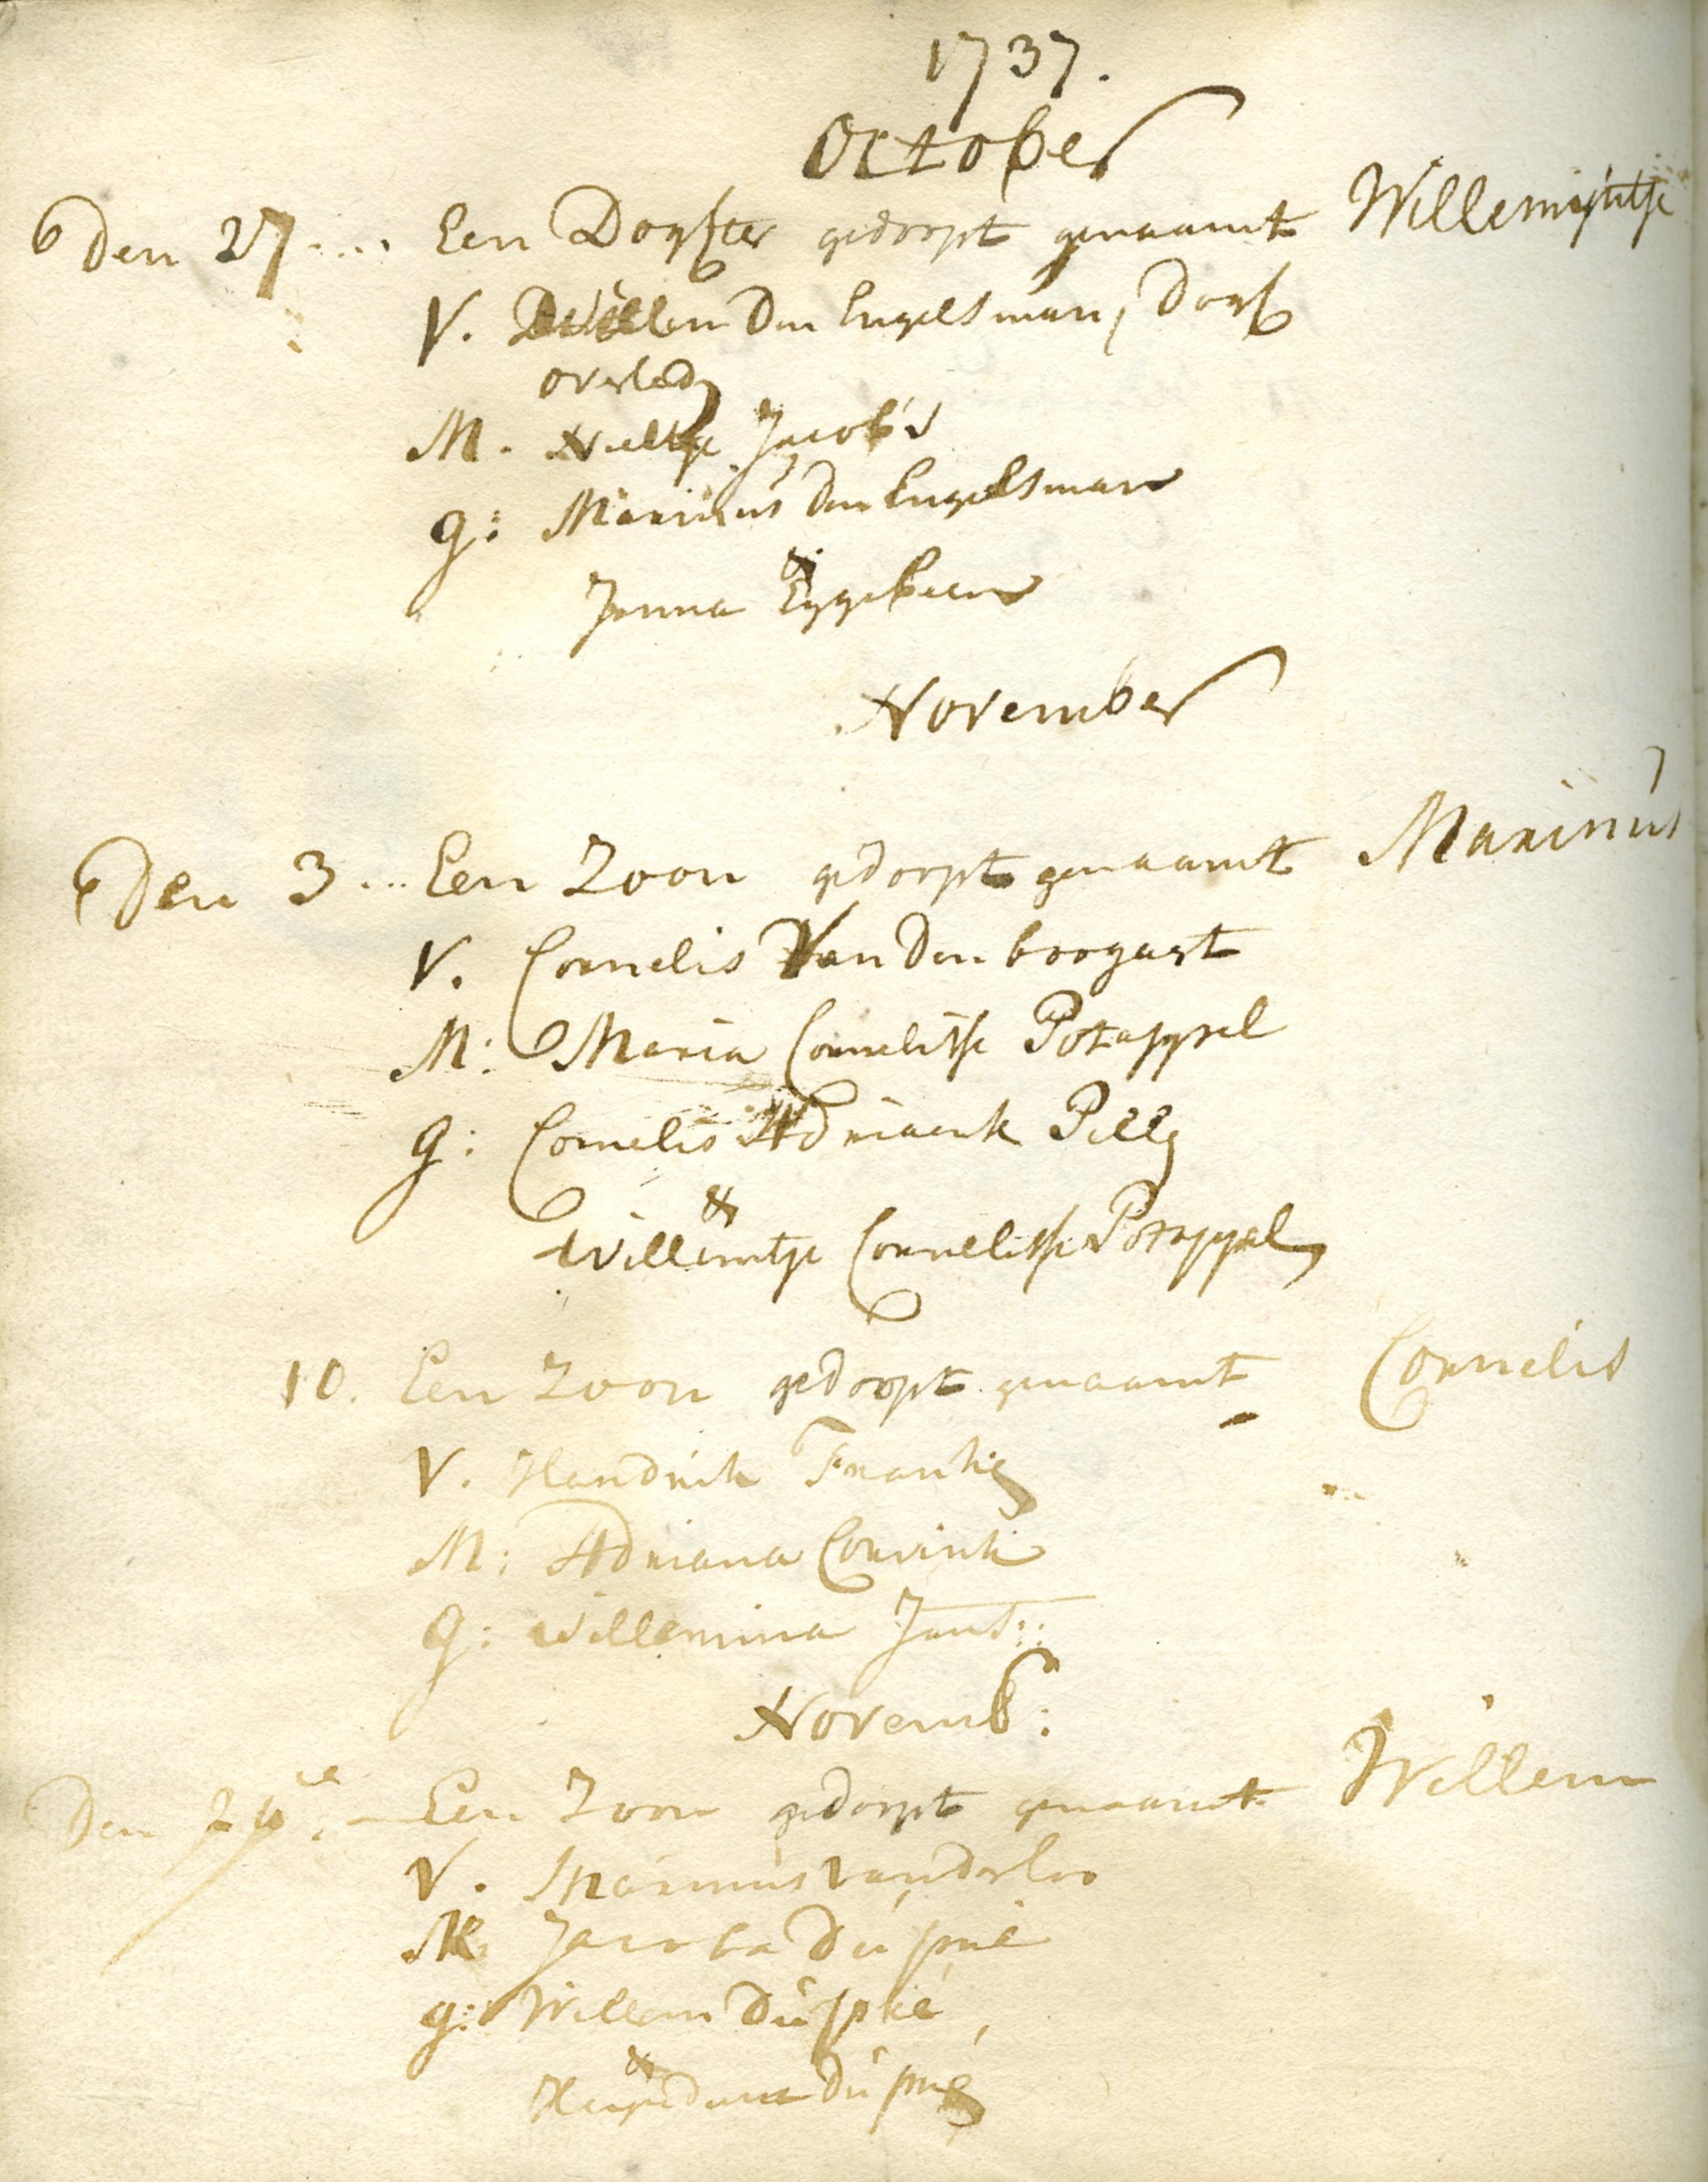 1737.
October
Den 27.... Een Dogfter gedoopt genaamt Willemijntje
V. Willem Den Engelsman, Dogh
overled
M. Neeltje Jacobs
g: Marinus den Engelsman
&
Janna Eggebeen
November
Den 3... Een Zoon gedoopt genaamt Marinus
V. Cornelis Van Den boogart
M: Maria Cornelisse Potappel
g: Cornelis Adriaenk
&
Willemtje Cornelisse Potappel
10. Een Zoon gedoopt genaamt Cornelis
V. Hendrik Frankę
M: Adriana
g: Willemina Jans::
Novemb:
Den Een Zoon gedoopt genaamt Willem
V. Marinus vanderloo
M Jacoba Du pué
g: Willem Du pué,
&
Du pué